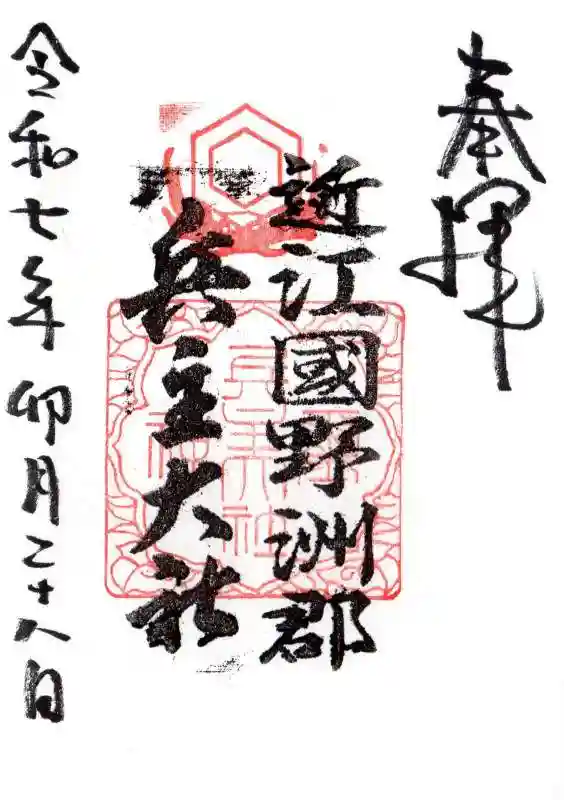 奉拝
近江國野洲郡
兵主大社
令和七年卯月二十八日